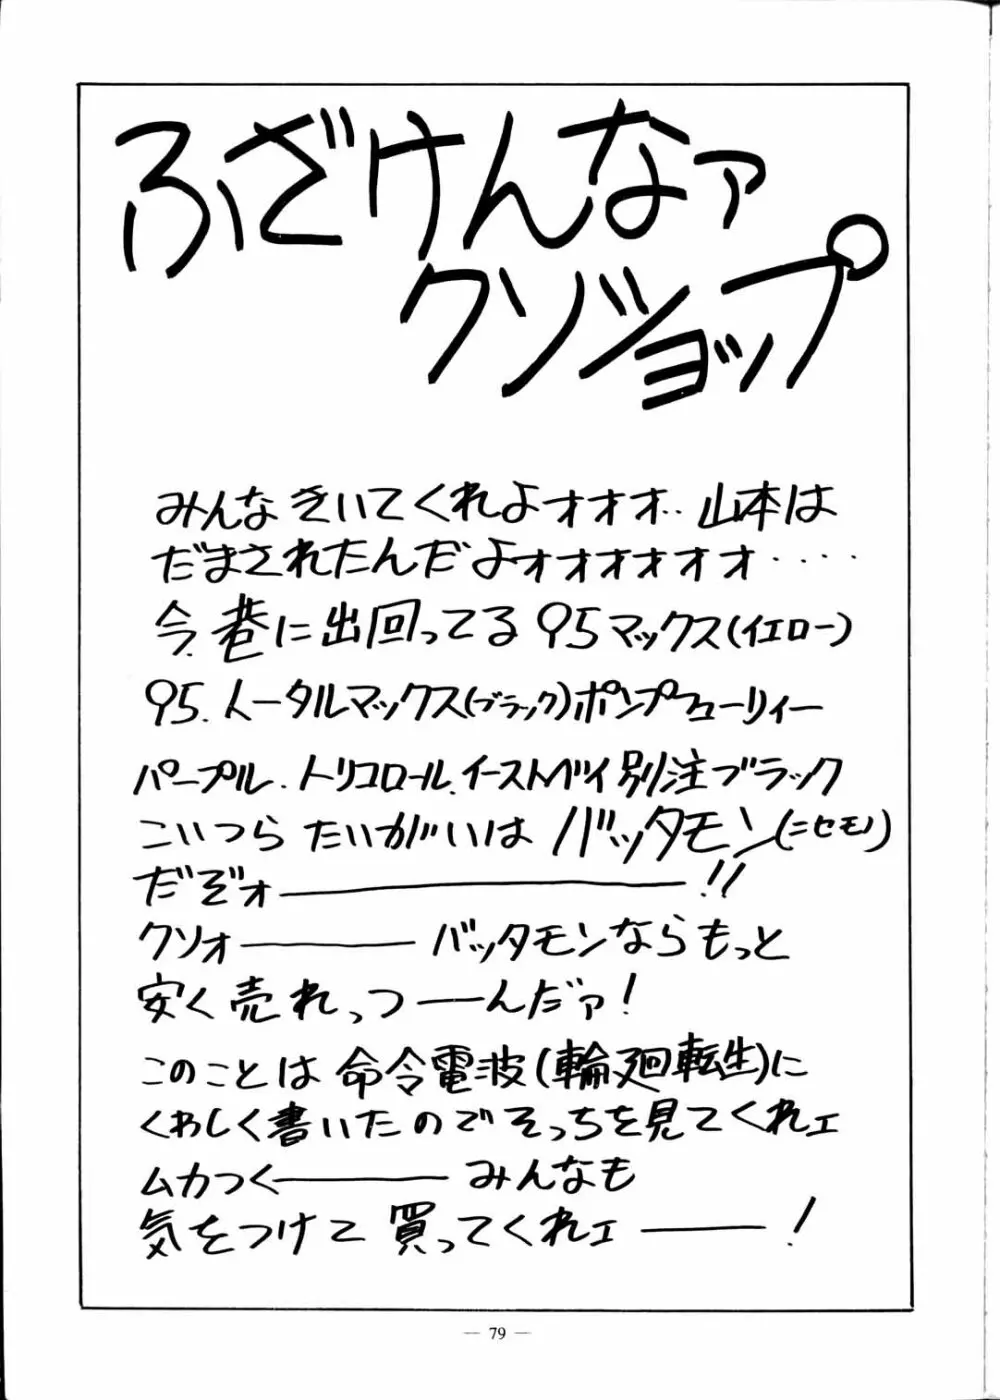 ふざけんなァ
クソショップ
みんなきいてくれよォオオ‥山本は
だまされたんだよォォオオオオオ‥‥
今、巷に出回ってる95マックス(イエロー)
95.トータルマックス(ブラック)ポンプフューリィー
パープル、トリコロール、イーストベイ別注ブラック
こいつらたいがいはバッタモン(ニセモノ)
だぞォ――――――!!
クソォ―――バッタモンならもっと
安く売れっつ――んだァ!
このことは命令電波(輪廻転生)に
くわしく書いたのでそっちを見てくれェ
ムカつく―――みんなも
気をつけて買ってくれェ――!
— 79 —